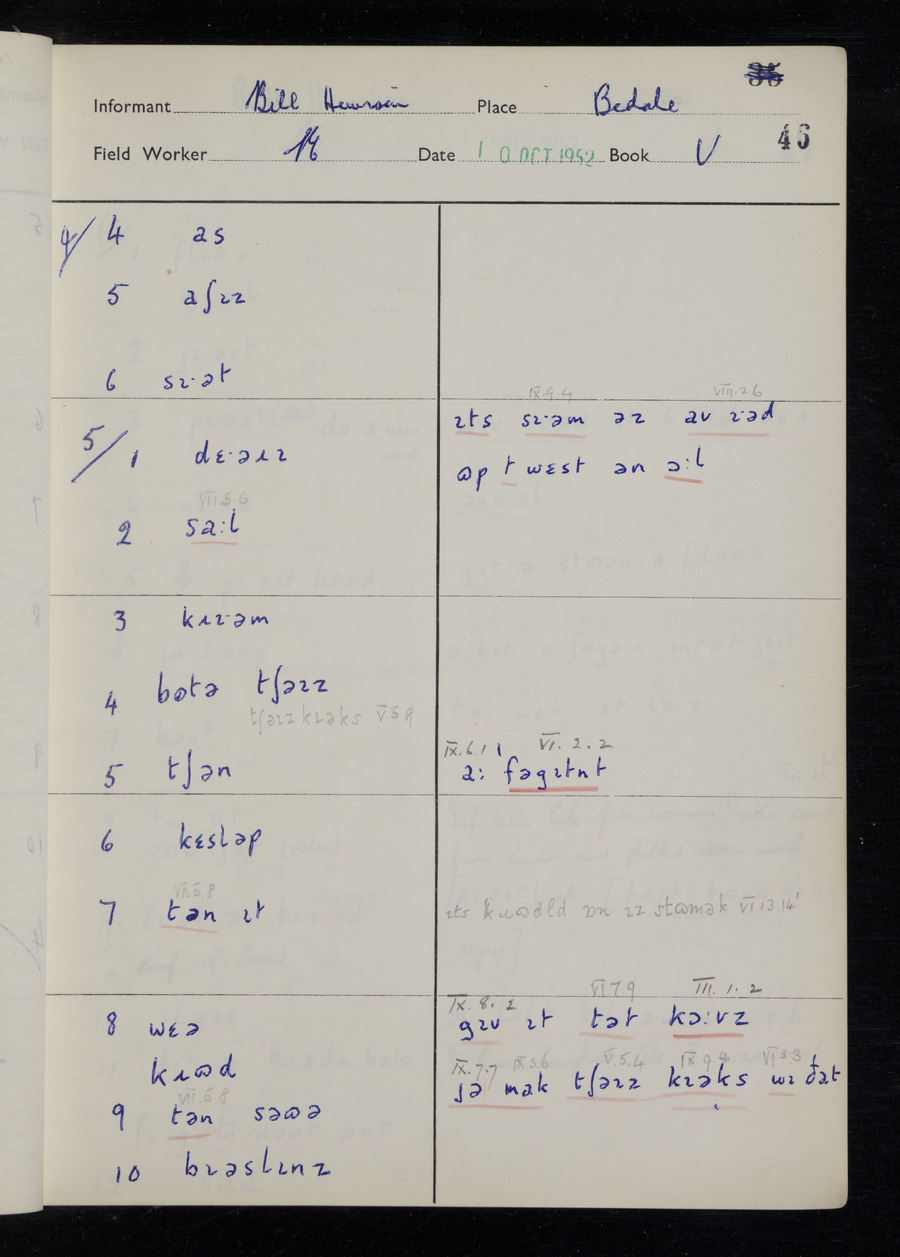 35
Informant Bill Place Bedale
46
Field Worker Date 10 OCT 1952 Book V
4/ 4 as
5 aʃɪz
6 sɪ·ət
IX.9.4 VIII.2.6
5/ 1 dɛ·əɹɪ
ɪts sɪ·əm əz av ɪ·əd
ɷp t wɛst ən ə:l
VII.5.6
2 sa:l
3 kɹɪ·əm
4 bɷtə tʃəɪz
tʃəɪz kɹəks V.5.4
IX.6.1 VI.2.2
5 tʃən
a: fəgɪtnt
6 kɛsləp
VII.5.8
7 tən ɪt
ɪts kɹɷdld ɒn ɪz stɷmək VI 13 14
IX.8.2 VI 7 9 III.1.2
8 wɛə
gɪv ɪt tət kə:vz
kɹɷd
IX.7.7 IX 3.6 V.5.4 IX 9 4 VI 3 3
jə mak tʃəɪz kɹəks wɪ ðat
VII.5.8
9 tən səɷə
10 bɪəslɪnz